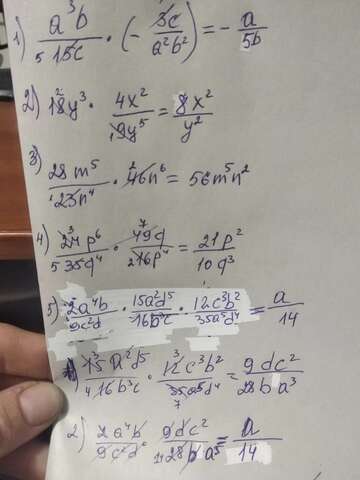 1) a³b / 5 15c · (- 3c / a²b²) = - a / 5b
2) 18² y³ · 4x² / 19y⁵ = 8x² / y²
3) 28 m⁵ / 1 23n⁴ · ² 46n⁶ = 56m⁵n²
4) ³ 24 p⁶ / 5 35q⁴ · ⁷ 49q / 2 16p⁴ = 21p² / 10q³
5) 2a⁴b / 9c²d · 15a²d⁵ / 16b³c · 12c³b² / 35a⁵d⁴ = a / 14
1) 15 a²d⁵ / 4 16b³c · ³ 12c³b² / 35a⁵d⁴ 7 = 9dc² / 28ba³
2) 2a⁴b / 9c²d · 9dc² / 14 28ba³ = a / 14